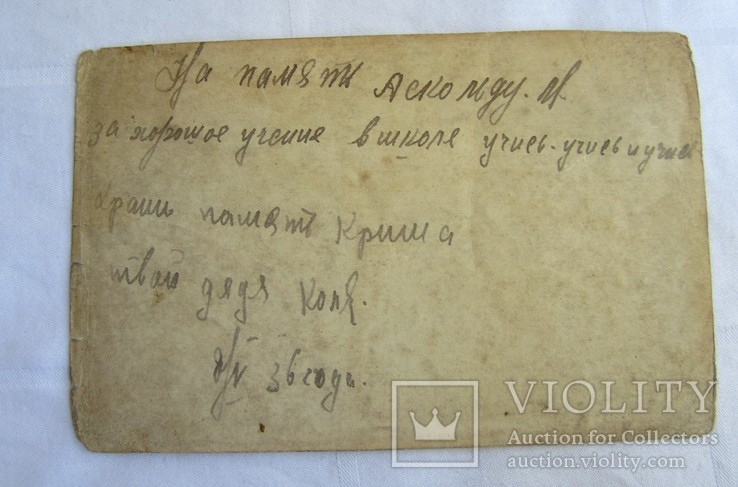 На память Аскольду. М.
за хорошое учение в школе учись. учись и учись
храни память Крыма
твой дядя Коля.
36 года.
VIOLITY
Auction for Collectors
auction.violity.com